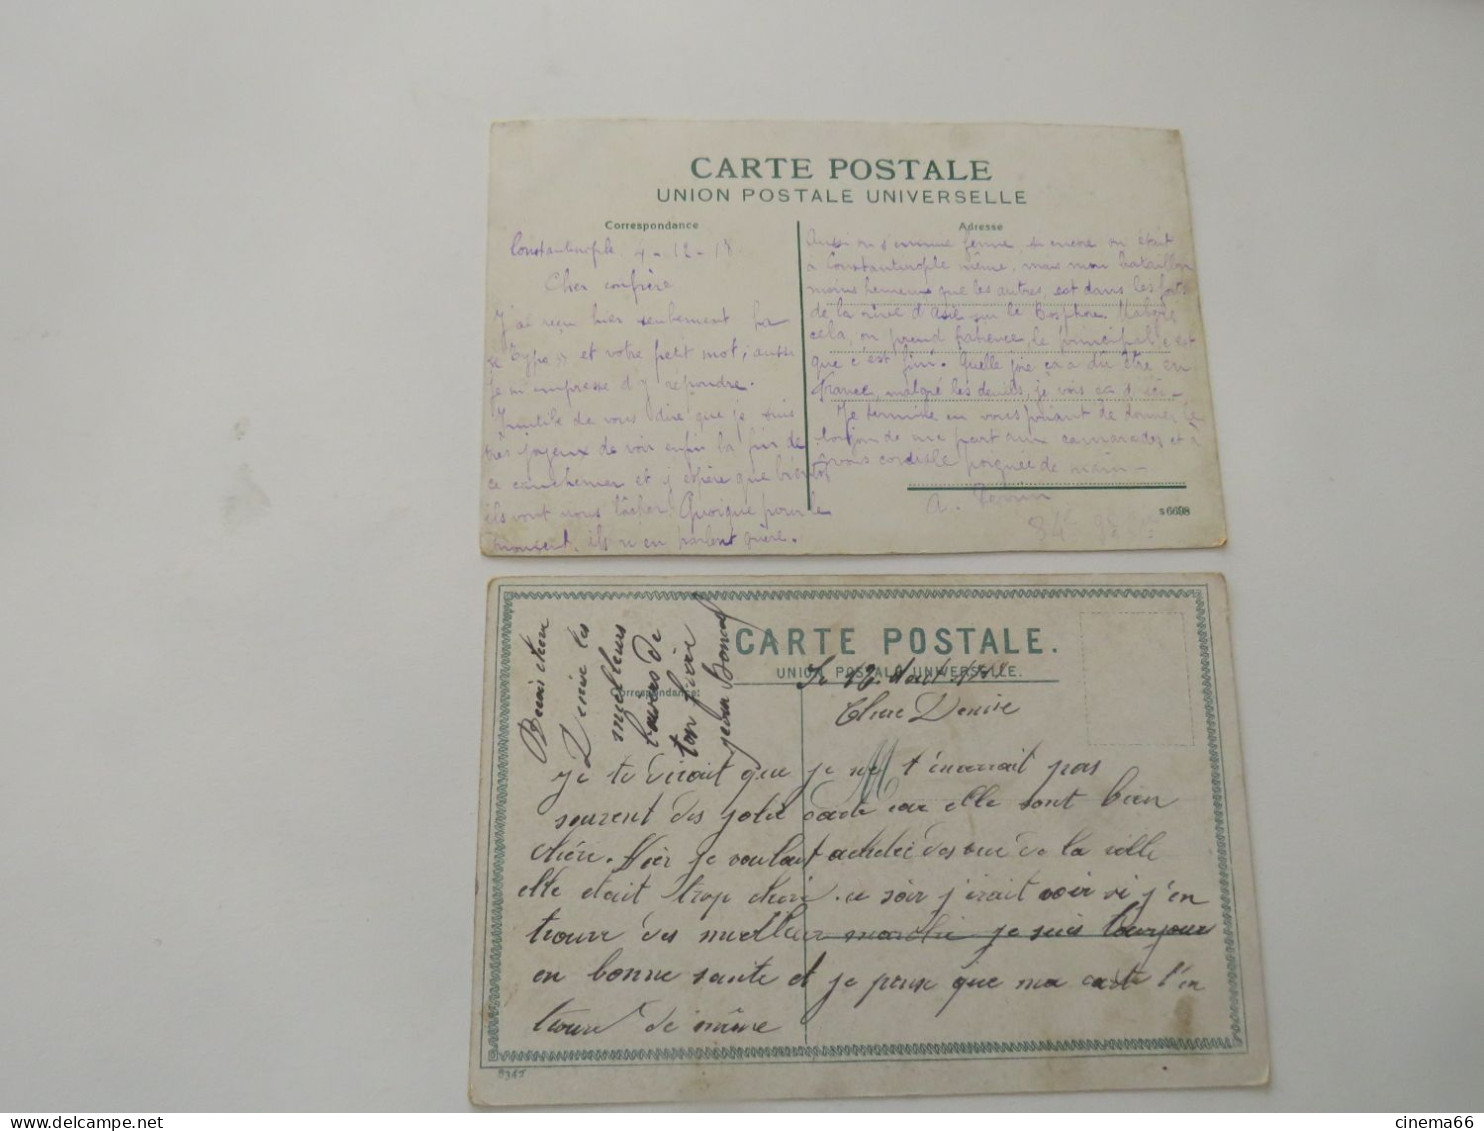 CARTE POSTALE
UNION POSTALE UNIVERSELLE
Correspondance
Constantinople 7-12-18
Cher confrère
J'ai reçu hier seulement la
et votre petit mot, aussi
je m'empresse d'y répondre.
Inutile de vous dire que je suis
très joyeux de voir enfin la fin de
ce cauchemar et j'espère que bientôt
ils vont nous lâcher. Quoique pour le
moment, ils n'en parlent guère.
Adresse
Aussi on s'ennuie ferme si encore on était
à Constantinople même, mais mon bataillon
moins heureux que les autres, est dans les forts
de la rive d'Asie sur le Bosphore. Malgré
cela, on prend patience, le principal c'est
que c'est fini. Quelle joie ça a dû être en
France, malgré les deuils, je vois ça d'ici
Je termine en vous priant de donner le
bonjour de ma part aux camarades et à
vous cordiale poignée de main
A.
s 6698
CARTE POSTALE.
UNION POSTALE UNIVERSELLE
Correspondance:
chère
Denise les
meilleurs
baisers de
ton frère
Jean
Le 12 Aout
Chère Denise
je te dirait que je ne t'enverrait pas
souvent des jolie carte car elle sont bien
chère. Hier je voulait acheter des vue de la ville
elle était trop chère. ce soir j'irait voir si j'en
trouve des meilleur marché je suis toujour
en bonne santé et je pense que ma carte t'en
trouve de même
8365
cinema66